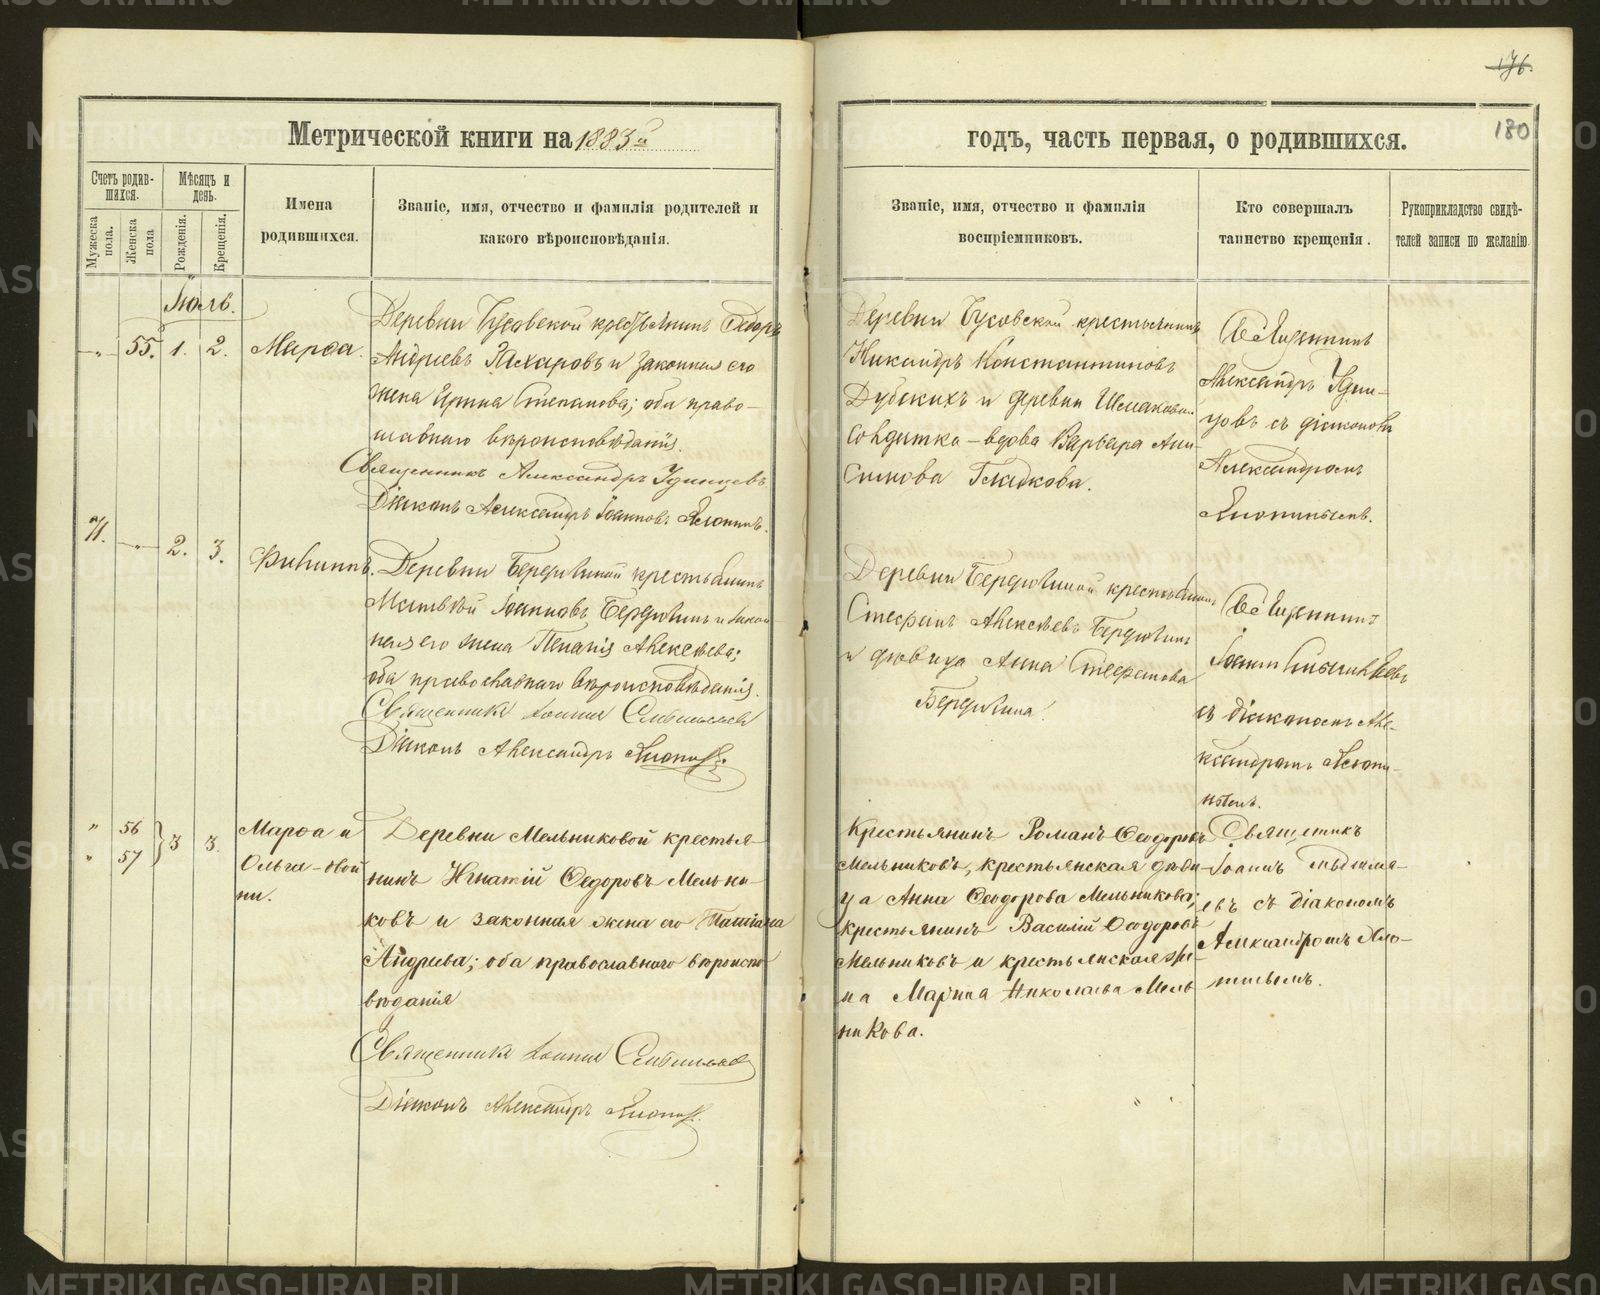 176.
180
Метрической книги на 1883й
годъ, часть первая, о родившихся.
Счетъ родив-
шихся.
Мѣсяцъ и
день.
Мужеска
пола.
Женска
пола
Рожденія.
Крещенія.
Имена
родившихся.
Званіе, имя, отчество и фамилія родителей и
какого вѣроисповѣданія.
Званіе, имя, отчество и фамилія
воспріемниковъ.
Кто совершалъ
таинство крещенія.
Рукоприкладство свидѣ-
телей записи по желанію.
Іюль.
55. 1. 2.
Марѳа.
Деревни крестьянинъ
Андреевъ Захаровъ и законная его
жена Ирина Степанова; оба право-
славнаго вѣроисповѣданія.
Священникъ Александръ Удинцевъ
Діаконъ Александръ
Деревни крестьянинъ
Никандръ Константиновъ
Дубскихъ и деревни
Солдатка-вдова Варвара Ани-
симова Гладкова.
Священникъ
Александръ Удин-
цовъ съ діакономъ
Александромъ
71. 2. 3.
Филиппъ.
Деревни крестьянинъ
Матвѣй Іоанновъ и закон-
ная его жена Пелагія Алексѣева;
оба православнаго вѣроисповѣданія.
Священникъ Іоаннъ
Діаконъ Александръ
Деревни крестьянинъ
Стефанъ Алексѣевъ
и дѣвица Анна Стефанова
Священникъ
Іоаннъ
съ діакономъ Але-
ксандромъ
" 56
" 57
3 3.
Марѳа и
Ольга-двой
ни.
Деревни Мельниковой крестья-
нинъ Игнатій Ѳедоровъ Мельни-
ковъ и законная жена его Татіана
Андреева; оба православнаго вѣроиспо-
вѣданія
Священникъ Іоаннъ
Діаконъ Александръ
Крестьянинъ Романъ Ѳеодоровъ
Мельниковъ, крестьянская дѣви-
ца Анна Ѳеодорова Мельникова;
крестьянинъ Василій Ѳеодоровъ
Мельниковъ и крестьянская же-
на Марина Николаева Мель
никова.
Священникъ
Іоаннъ
евъ съ діакономъ
Александромъ
METRIKI.GASO-URAL.RU